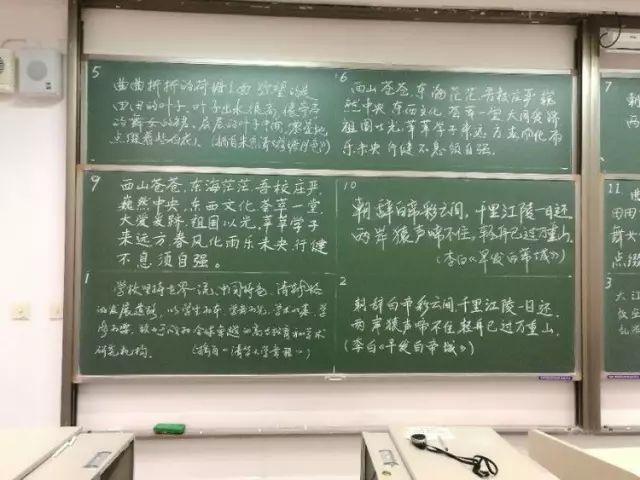 5
曲曲折折的荷塘上面,弥望的是
田田的叶子。叶子出水很高,像亭亭
的舞女的裙。层层的叶子中间,零星地
点缀着些白花。(摘自朱自清《荷塘月色》)
6
西山苍苍,东海茫茫,吾校庄严,巍
然中央,东西文化,荟萃一堂,大同爰跻,
祖国以光,莘莘学子来远方,春风化雨
乐未央,行健不息须自强。
9
西山苍苍,东海茫茫,吾校庄严,
巍然中央,东西文化,荟萃一堂,
大爱爰跻,祖国以光,莘莘学子
来远方,春风化雨乐未央,行健
不息须自强。
10
朝辞白帝彩云间,千里江陵一日还
两岸猿声啼不住,轻舟已过万重山。
(李白《早发白帝城》)
1
学校坚持世界一流、中国特色、清华风格
的发展道路,
研究机构。
2
朝辞白帝彩云间,千里江陵一日还,
两岸猿声啼不住,轻舟已过万重山。
(李白《早发白帝城》)
7
朝
两
11
曲
田田
舞女
点缀
3
大江
故垒
乱石